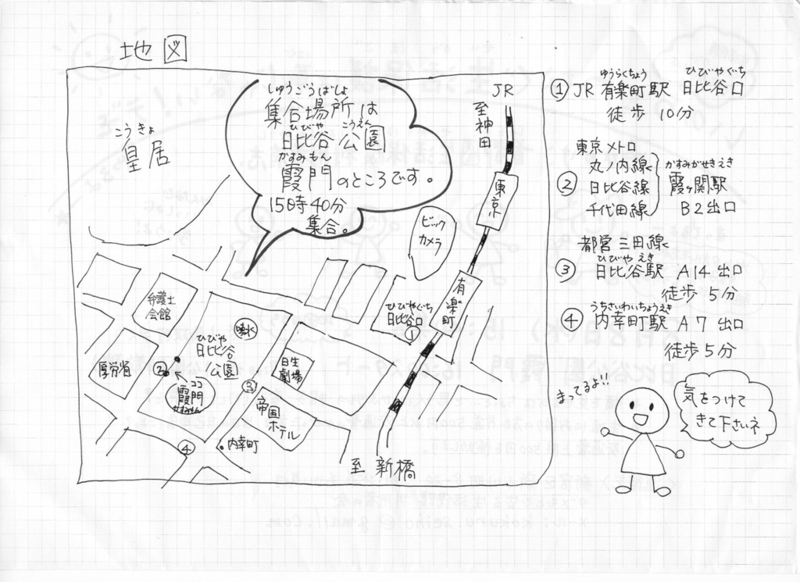 地図
こうきょ
皇居
しゅうごうばしょ
集合場所は
ひびや こうえん
日比谷公園
かすみもん
霞門のところです。
15時40分
集合。
JR
至神田
東京
ビック
カメラ
有楽町
ひびやぐち
日比谷口
①
弁護士
会館
噴水
ひびや
日比谷
公園
日生
劇場
厚労省
②
ココ
霞門
かすみもん
③
帝国
ホテル
④
内幸町
至新橋
ゆうらくちょう ひびやぐち
① JR 有楽町駅 日比谷口
徒歩 10分
東京メトロ
丸ノ内線
② 日比谷線
千代田線
かすみがせきえき
霞ヶ関駅
B2出口
都営 三田線
ひびや えき
③ 日比谷駅 A14出口
徒歩 5分
うちさいわいちょうえき
④ 内幸町駅 A7 出口
徒歩5分
まってるよ!!
気をつけて
きて下さいネ